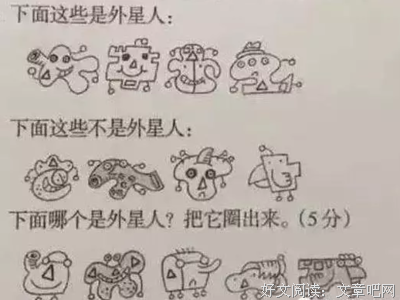 下面这些是外星人：
下面这些不是外星人：
下面哪个是外星人？把它圈出来。（5分）
好文阅读：文章吧网